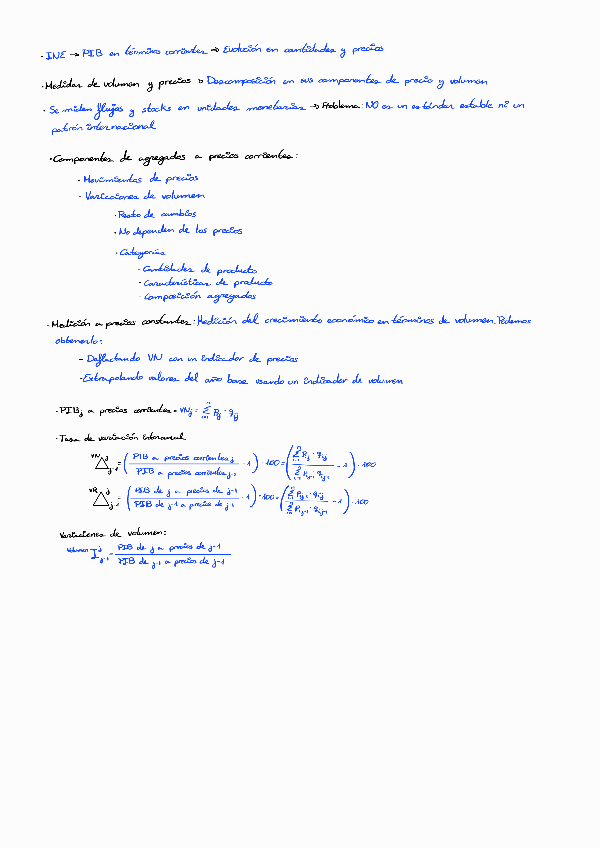 · INE → PIB en términos corrientes → Evolución en cantidades y precios
· Medidas de volumen y precios → Descomposición en sus componentes de precio y volumen
· Se miden flujos y stocks en unidades monetarias → Problema: NO es un estándar estable ni un
patrón internacional
· Componentes de agregados a precios corrientes:
- Movimientos de precios
- Variaciones de volumen
· Resto de cambios
· No dependen de los precios
· Categorías
- Cantidades de producto
- Características de producto
- Composición agregados
· Medición a precios constantes: Medición del crecimiento económico en términos de volumen. Podemos
obtenerlo:
- Deflactando VN con un indicador de precios
- Extrapolando valores del año base usando un indicador de volumen
· PIBj a precios corrientes = VNj = Σ Pj · qij
· Tasa de variación interanual
VN Δ j j-1 = (PIB a precios corrientes j / PIB a precios corrientes j-1 - 1) · 100 = (Σ Pj · qij / Σ Pj-1 · qij-1 - 1) · 100
VR Δ j j-1 = (PIB de j a precios de j-1 / PIB de j-1 a precios de j-1 - 1) · 100 = (Σ Pj-1 · qij / Σ Pij-1 · qij-1 - 1) · 100
Variaciones de volumen:
Volumen I j j-1 = PIB de j a precios de j-1 / PIB de j-1 a precios de j-1